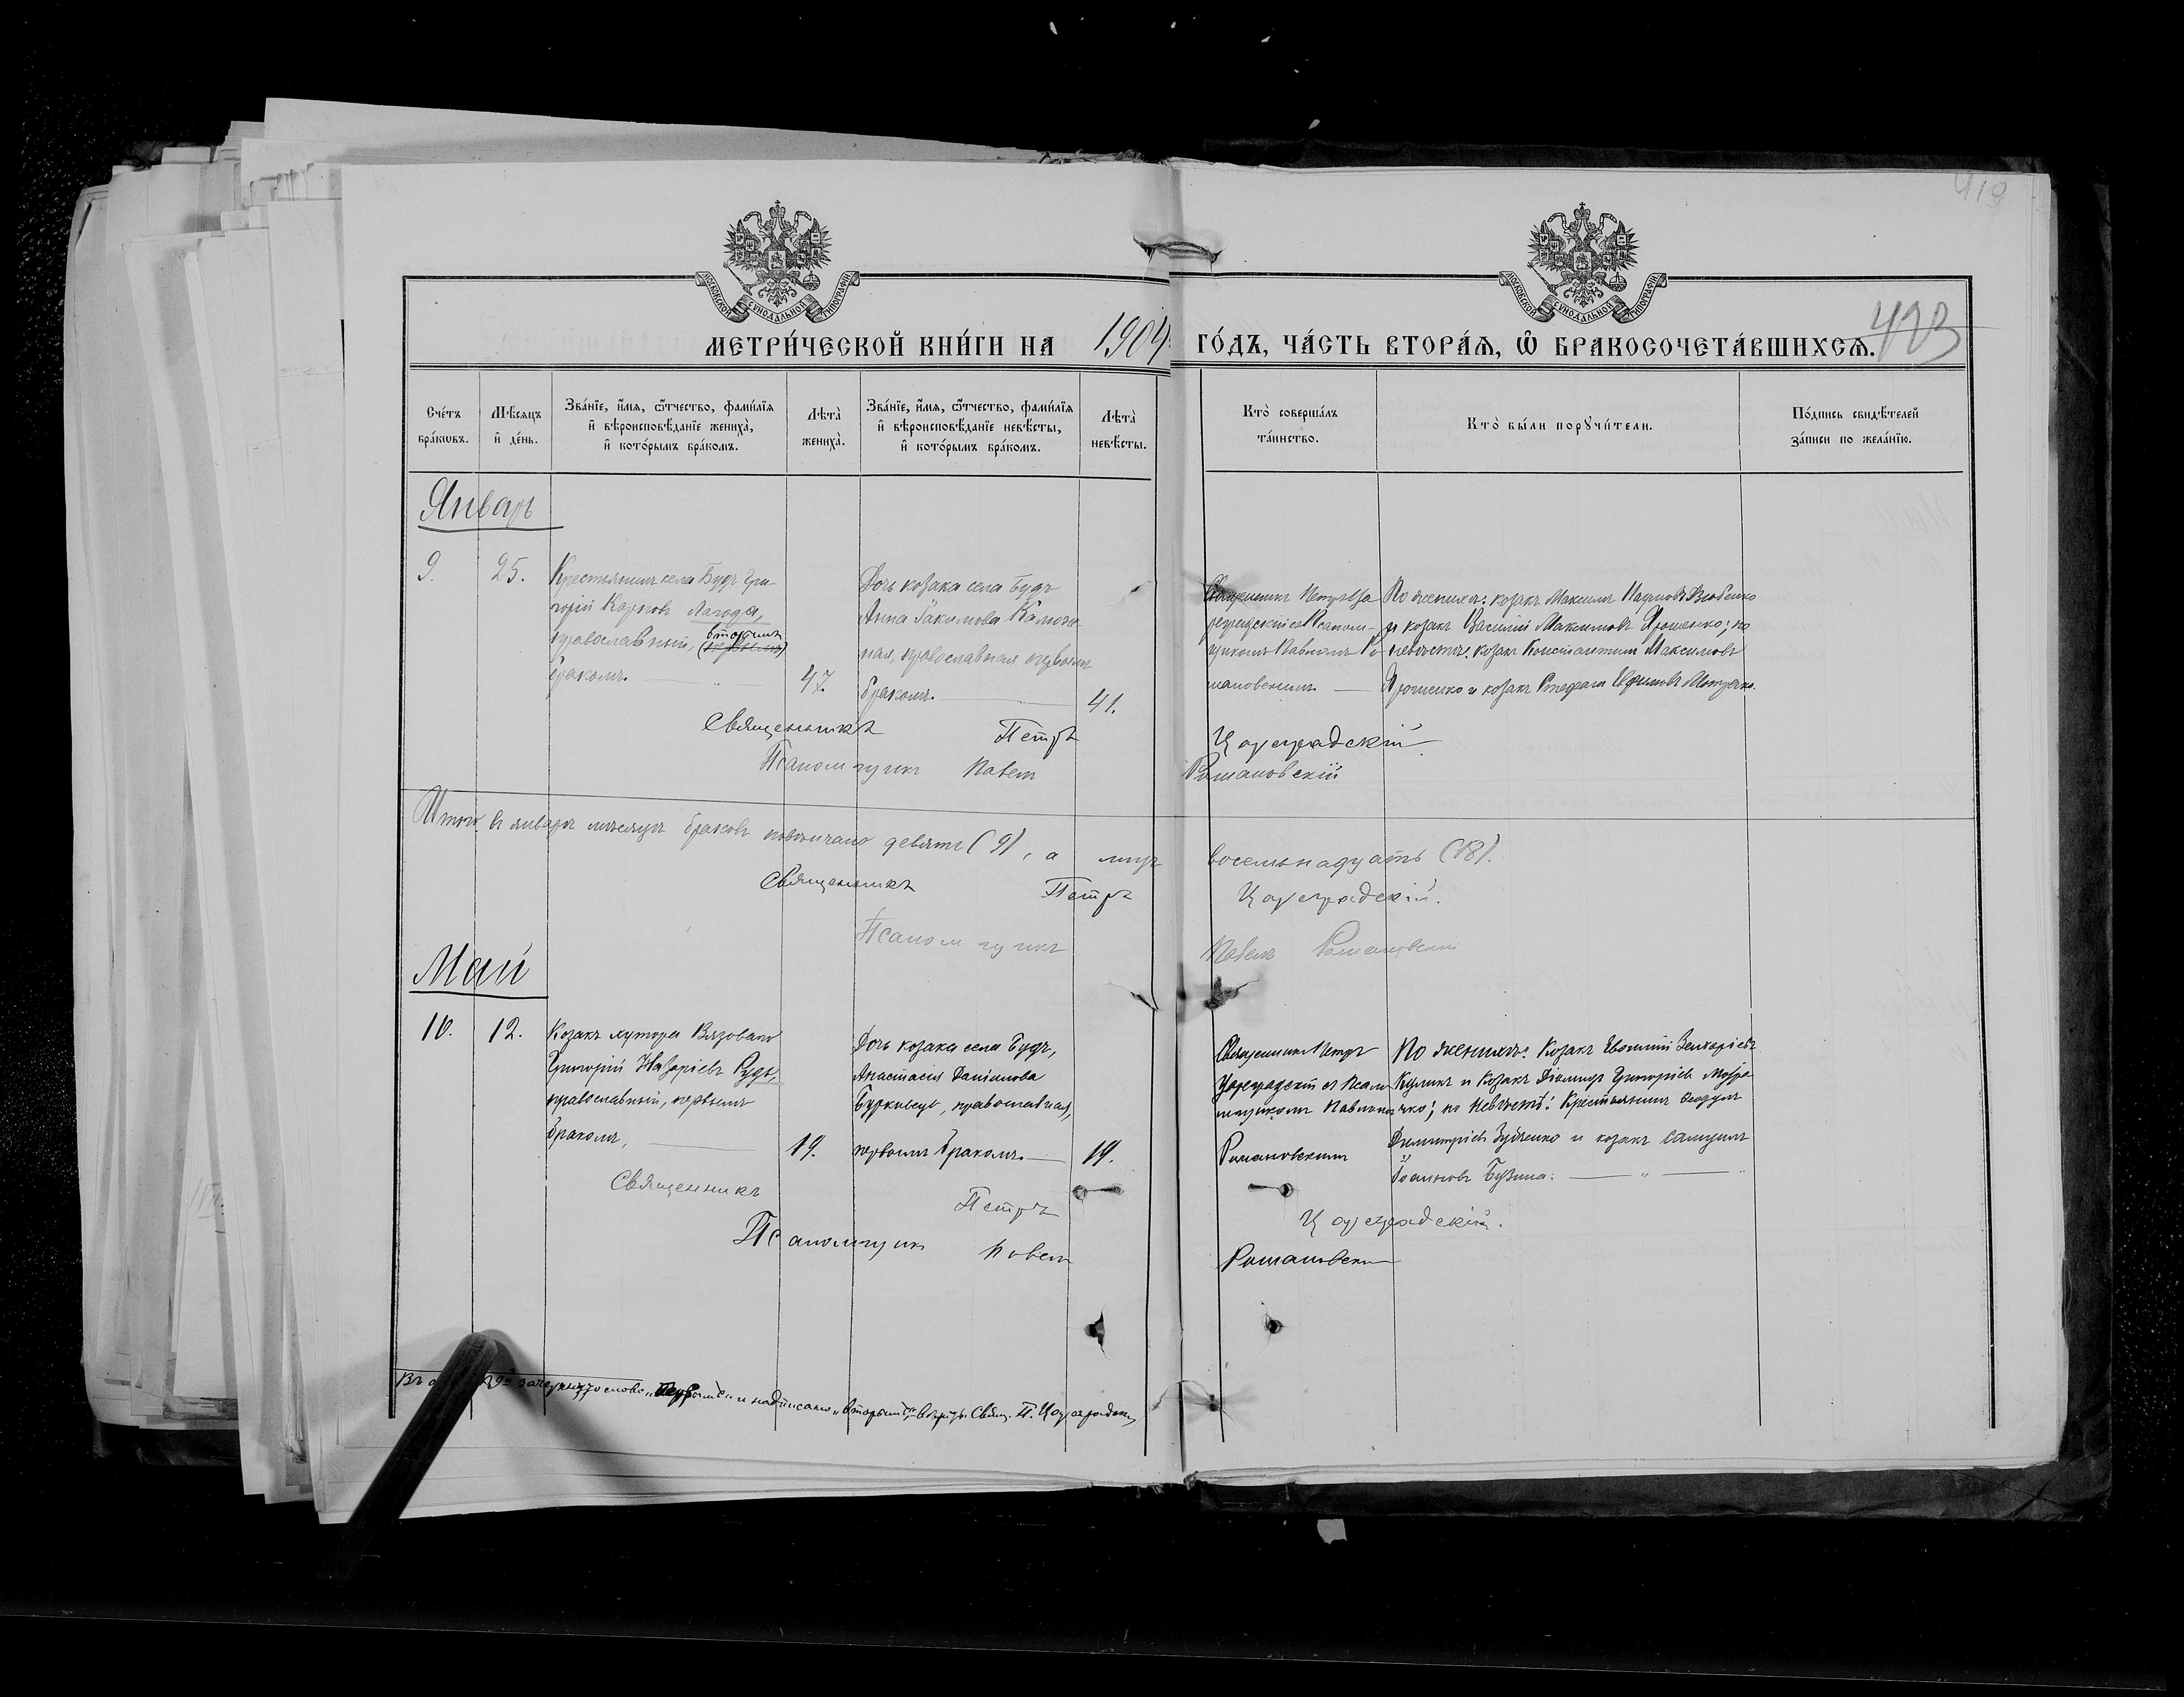 419
МОСКОВСКОЙ СѴНОДАЛЬНОЙ ТИПОГРАФІИ
МОСКОВСКОЙ СѴНОДАЛЬНОЙ ТИПОГРАФІИ
МЕТРИ́ЧЕСКОЙ КНИ́ГИ НА 1904 ГО́ДЪ, ЧА́СТЬ ВТОРА́Ѧ, Ѽ БРАКОСОЧЕТА́ВШИХСѦ. 423
Сче́тъ
бра́кѡвъ.
Мѣ́сѧцъ
и҆ де́нь.
Зва́нїе, и҆́мѧ, ѻ҆́тчество, фами́лїѧ
и҆ вѣроисповѣ́данїе жениха̀,
и҆ кото́рымъ бра́комъ.
Лѣта̀
жениха̀.
Зва́нїе, и҆́мѧ, ѻ҆́тчество, фами́лїѧ
и҆ вѣроисповѣ́данїе невѣ́сты,
и҆ кото́рымъ бра́комъ.
Лѣта̀
невѣ́сты.
Кто̀ соверша́лъ
та́инство.
Кто̀ бы́ли порꙋчи́тели.
По́дпись свидѣ́телей
за́писи по жела́нїю.
Январь
9.
25.
Крестьянинъ села Будъ Гри-
горій Карповъ Лагода,
православный, вторымъ (первымъ)
бракомъ.
47.
Дочь козака села Будъ
Анна Іакимова
ная, православная, первымъ
бракомъ.
41.
Священникъ Петръ Ца
реградскій съ Псалом-
щикомъ Павломъ Ро
мановскимъ.
По женихѣ: козакъ Максимъ Наумовъ
и козакъ Василій Максимовъ Ярошенко; по
невѣстѣ: козакъ Константинъ Максимовъ
Ярошенко и козакъ Стефанъ
Священникъ Петръ Цареградскій
Псаломщикъ Павелъ Романовскій
Итого въ январѣ мѣсяцѣ браковъ повѣнчано девять (9), а лицъ восемьнадцать (18).
Священникъ Петръ Цареградскій.
Псаломщикъ Павелъ Романовскій
Май
10.
12.
Козакъ хутора Вязоваго
Григорій Назаріевъ Рудь,
православный, первымъ
бракомъ,
19.
Дочь козака села Будъ,
Анастасія Даніилова
православная,
первымъ бракомъ.
19.
Священникъ Петръ
Цареградскій съ Псало
мщикомъ Павломъ
Романовскимъ
По женихѣ: Козакъ Евфимій Захаріевъ
Куликъ и Козакъ Діомидъ Григоріевъ
по невѣстѣ: Крестьянинъ Ѳеодулъ
Димитріевъ Зубченко и козакъ Самуилъ
Іоанновъ Бузина.
Священникъ Петръ Цареградскій.
Псаломщикъ Павелъ Романовскій
зачеркнуто слово „первымъ" и надписано „вторымъ" Свящ. П. Цареградскій